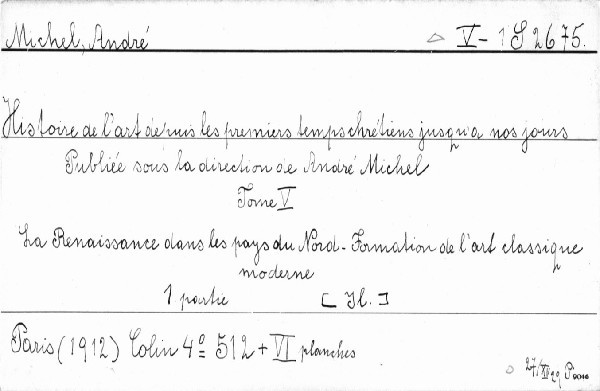 Michel, André V-1S 2675.
Histoire de l'art depuis les premiers temps chrétiens jusqu'a nos jours
Publiée sous la direction de André Michel
Tome V
La Renaissance dans les pays du Nord - Formation de l'art classique
moderne
1 partie [Il.]
Paris (1912) Colin 4º 512 + VI planches